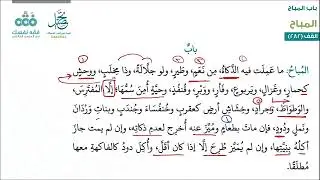 باب المباح
المباح
القف (٢٨٢)
محمد
فقه نفسك
باب
المباحُ: ما عَمِلَت فيه الذَّكاةُ، مِن نَعَمٍ، وطَيرٍ ولو جلَّالةً، وذا مِخلَبٍ، ووَحشٍ
كحِمارٍ، وغَزالٍ، ويَربوعٍ، وفأرٍ، ووَبْرٍ، وقُنفُذٍ، وحيَّةٍ أُمِنَ سُمُّها، إلَّا المُفترِسَ،
والوَطْواطَ، وجَرادٍ، وخَشاشِ أرضٍ كعقربٍ، وخُنفساءَ، وجُندَبٍ، وبناتِ وَرْدَانَ
ونملٍ ودُودٍ، فإن ماتَ بطعامٍ ومُيِّزَ عنه أُخرِجَ لعدمِ ذكاتِه، وإن لم يمت جاز
أكلُه بنِيَّتِها، وإن لم يُميَّز طُرِحَ إلَّا إذا كان أقلَّ، وأُكِلَ دودُ كالفاكهةِ معها
مطلقًا.